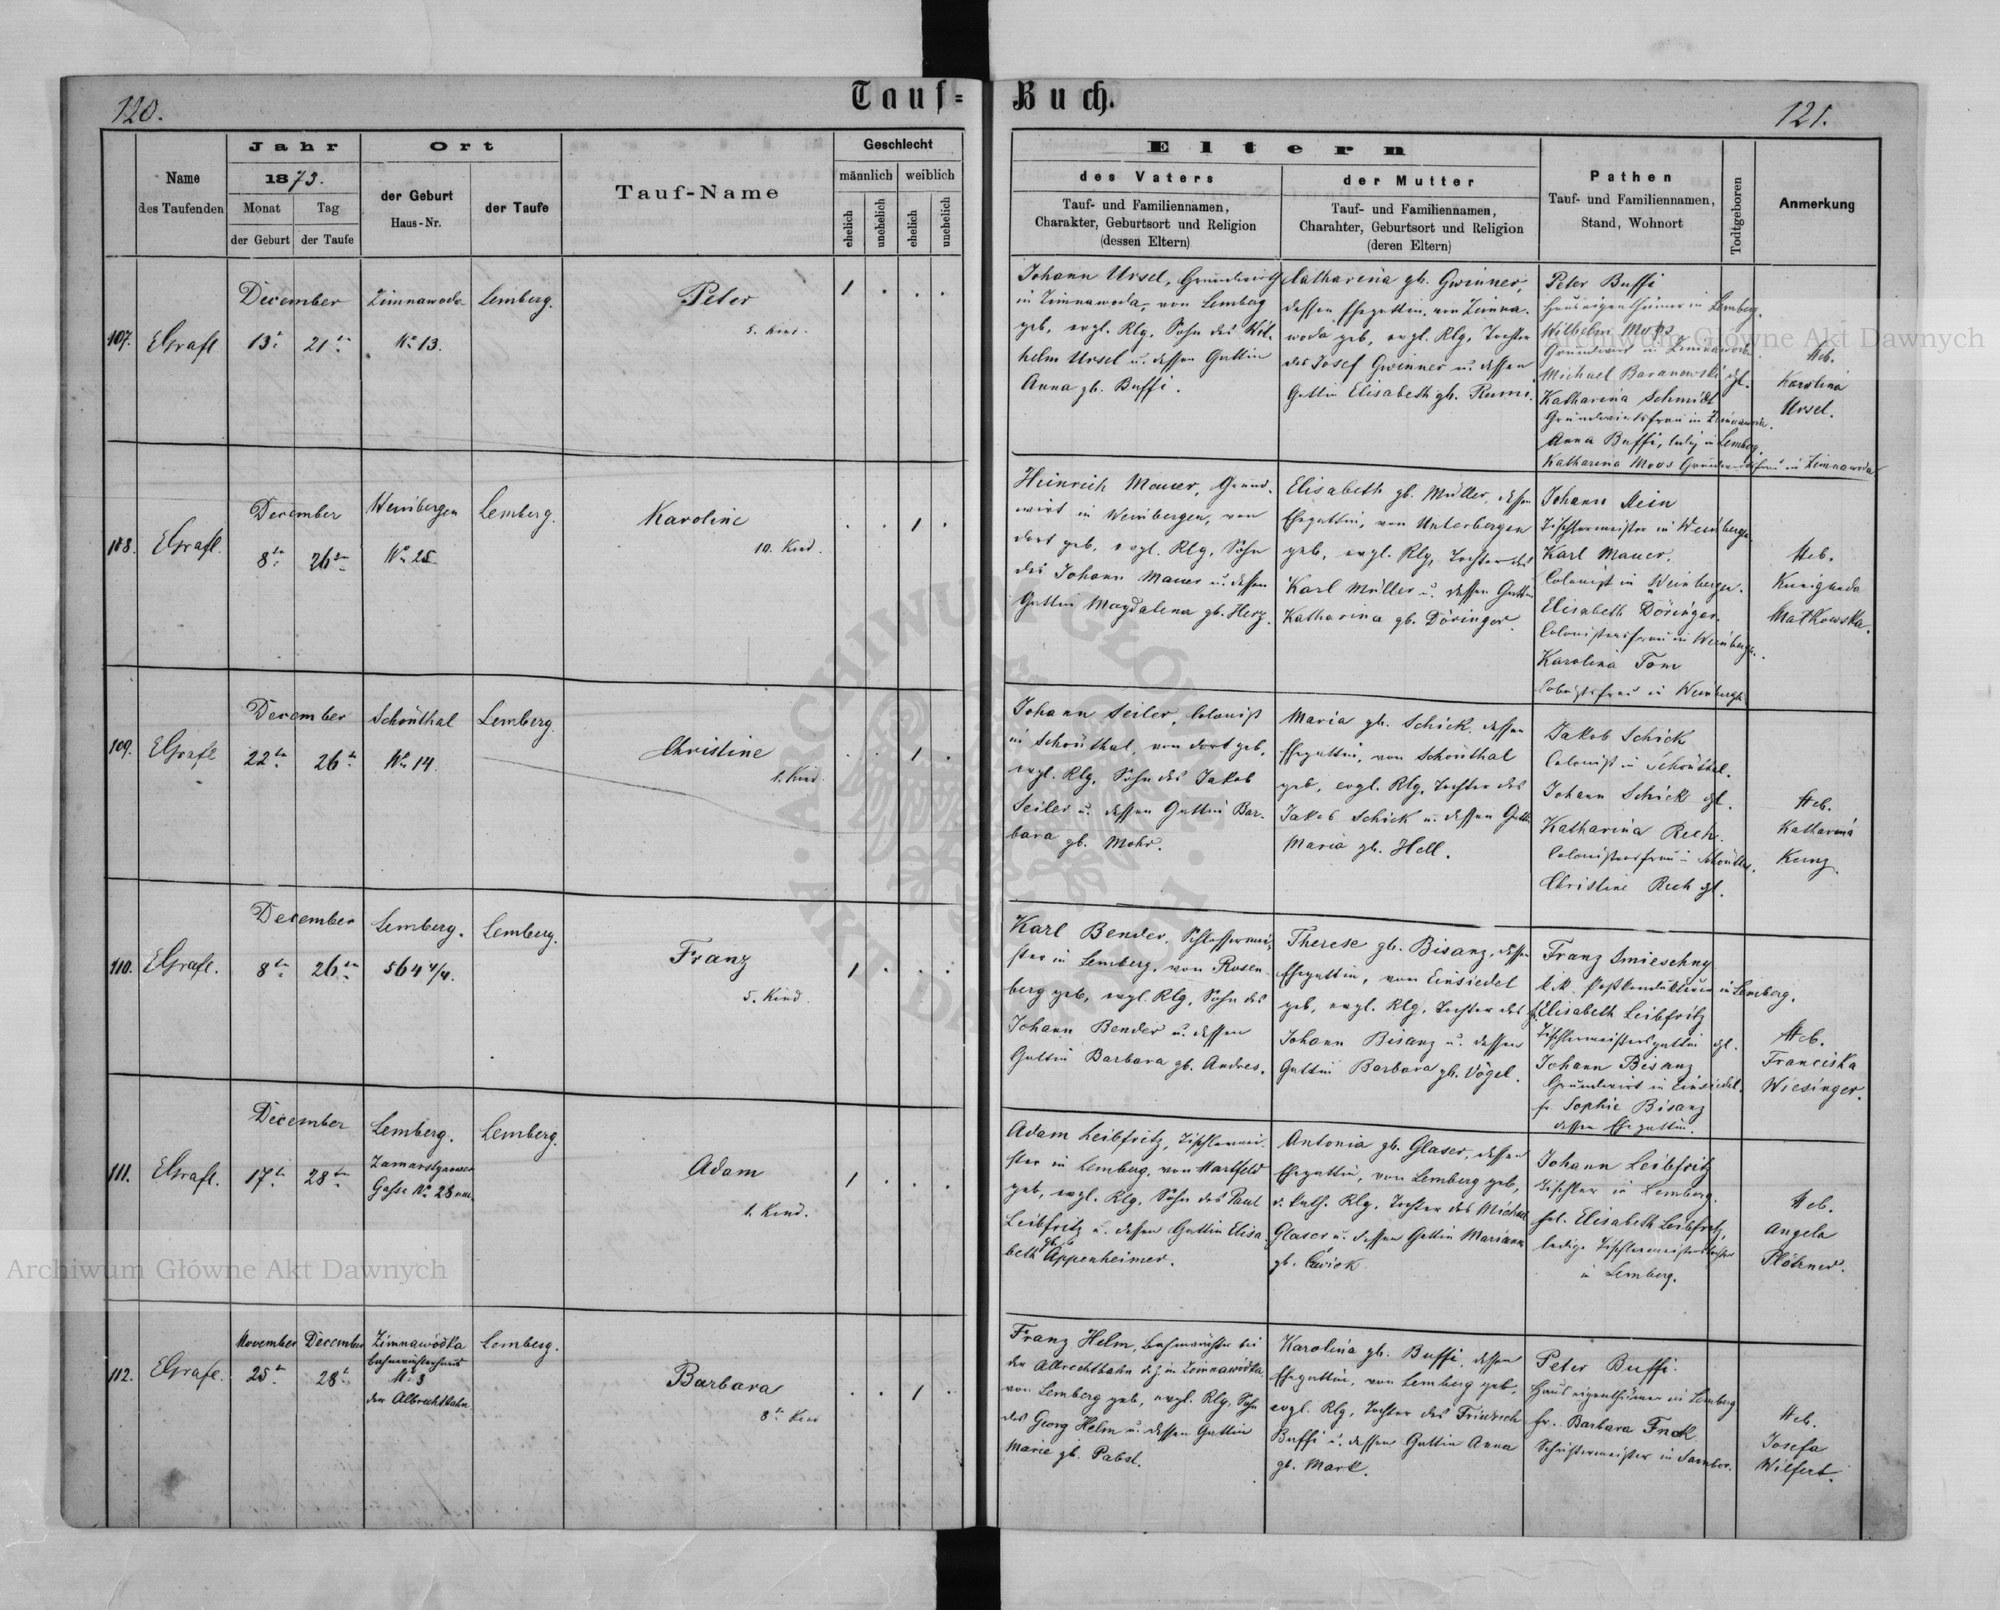 120.
Tauf-Buch.
121.
Name
des Taufenden
Jahr
1873.
Monat
der Geburt
Tag
der Taufe
Ort
der Geburt
Haus-Nr.
der Taufe
Tauf-Name
Geschlecht
männlich
weiblich
ehelich
unehelich
ehelich
unehelich
Eltern
des Vaters
Tauf- und Familiennamen,
Charakter, Geburtsort und Religion
(dessen Eltern)
der Mutter
Tauf- und Familiennamen,
Charahter, Geburtsort und Religion
(deren Eltern)
Pathen
Tauf- und Familiennamen,
Stand, Wohnort
Todtgeboren
Anmerkung
107.
EGrafl
December
13t
21t
Zimnawoda
No 13.
Lemberg.
Peter
5. Kind.
1
Johann Ursel, Grundwirth
in Zimnawoda, von Lemberg
geb, evgl. Rlg, Sohn des Wil-
helm Ursel u. dessen Gattin
Anna gb. Buffi.
Katharina gb. Gwinner,
dessen Ehegattin, von Zimna-
woda geb, evgl. Rlg, Tochter
des Josef Gwinner u. dessen
Gattin Elisabeth gb.
Peter Buffi
Hauseigenthümer in Lemberg.
Wilhelm Moos
Grundwirt in Zimnawoda
Michael Baranowski gl.
Katharina Schmidt
Grundwirtsfrau in Zimnawoda.
Anna Buffi, ledig in Lemberg.
Katharina Moos Grundwirtsfrau in Zimnawoda
Heb.
Karolina
Ursel.
108.
EGrafl.
December
8tn
26tn
Weinbergen
No 25
Lemberg.
Karoline
10. Kind.
1
Heinrich Mauer, Grund-
wirt in Weinbergen, von
dort geb, evgl. Rlg, Sohn
des Johann Mauer u. dessen
Gattin Magdalena gb. Herz.
Elisabeth gb. Müller, dessen
Ehegattin, von Unterbergen
geb, evgl. Rlg, Tochter des
Karl Müller u. dessen Gattin
Katharina gb. Döringer.
Johann Stein
Tischlermeister in Weinbergen
Karl Mauer,
Colonist in Weinbergen.
Elisabeth Döringer
Colonistensfrau in Weinbergen.
Karolina Tom
Colonistsfrau in Weinbergen
Heb.
Kunigunda
Małkowska.
109.
EGrafl
December
22tn
26t
Schönthal
No 14.
Lemberg.
Christine
1. Kind.
1
Johann Seiler, Colonist
in Schönthal, von dort geb,
evgl. Rlg, Sohn des Jakob
Seiler u. dessen Gattin Bar-
bara gb. Mohr.
Maria gb. Schick, dessen
Ehegattin, von Schönthal
geb, evgl. Rlg, Tochter des
Jakob Schick u. dessen Gattin
Maria gb. Hell.
Jakob Schick
Colonist in Schönthal.
Johann Schick gl.
Katharina Rech
Colonistensfrau in Schönthal.
Christine Rech gl.
Heb.
Katharina
Kunz.
110.
EGrafl.
December
8tn
26tn
Lemberg.
564 4/4.
Lemberg.
Franz
5. Kind.
1
Karl Bender, Schlossermei-
ster in Lemberg, von Rosen-
berg geb, evgl. Rlg, Sohn des
Johann Bender u. dessen
Gattin Barbara gb. Andres.
Therese gb. Bisanz, dessen
Ehegattin, von Einsiedel
geb, evgl. Rlg, Tochter des
Johann Bisanz u. dessen
Gattin Barbara gb. Vögel.
Franz Smieschny
k. k. Postkondukteur in Lemberg.
fr. Elisabeth Leibfritz
Tischlermeistersgattin gl.
Johann Bisanz
Grundwirt in Einsiedel.
fr. Sophie Bisanz
dessen Ehegattin.
Heb.
Franciska
Wiesinger.
111.
EGrafl.
December
17tn
28tn
Lemberg.
Gasse No 28
Lemberg.
Adam
1. Kind.
1
Adam Leibfritz, Tischlermei-
ster in Lemberg, von Hartfeld
geb, evgl. Rlg, Sohn des Paul
Leibfritz u. dessen Gattin Elisa-
beth gb Appenheimer.
Antonia gb. Glaser, dessen
Ehegattin, von Lemberg geb,
r. kath. Rlg, Tochter des Michael
Glaser u. dessen Gattin Marianna
gb. Cwiek
Johann Leibfritz
Tischler in Lemberg.
frl. Elisabeth Leibfritz,
ledige Tischlermeisterstochter
in Lemberg.
Heb.
Angela
112.
EGrafl.
November
25t
December
28t
Zimnawodka
Bahnwächterhaus
No 3
der Albrechtbahn
Lemberg.
Barbara
8t Kind
1
Franz Helm, Bahnwächter bei
der Albrechtbahn d.z. in Zimnawodka
von Lemberg geb, evgl. Rlg, Sohn
des Georg Helm u. dessen Gattin
Marie gb. Pabst.
Karolina gb. Buffi, dessen
Ehegattin, von Lemberg geb,
evgl. Rlg, Tochter des Friedrich
Buffi u. dessen Gattin Anna
gb. Mark.
Peter Buffi.
Hauseigenthümer in Lemberg
fr. Barbara
in Sambor.
Heb.
Josefa
Wilfert.
Archiwum Główne Akt Dawnych
Archiwum Główne Akt Dawnych
ARCHIWUM GŁÓWNE AKT DAWNYCH